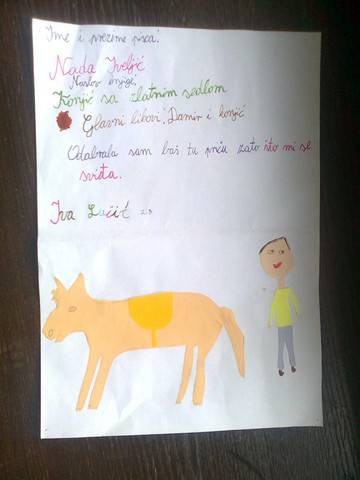 Ime i prezime pisca:
Nada Iveljić
Naslov knjige:
Konjić sa zlatnim sedlom
Glavni likovi: Damir i konjić
Odabrala sam baš tu priču zato što mi se
sviđa.
Iva Lačić 2.b